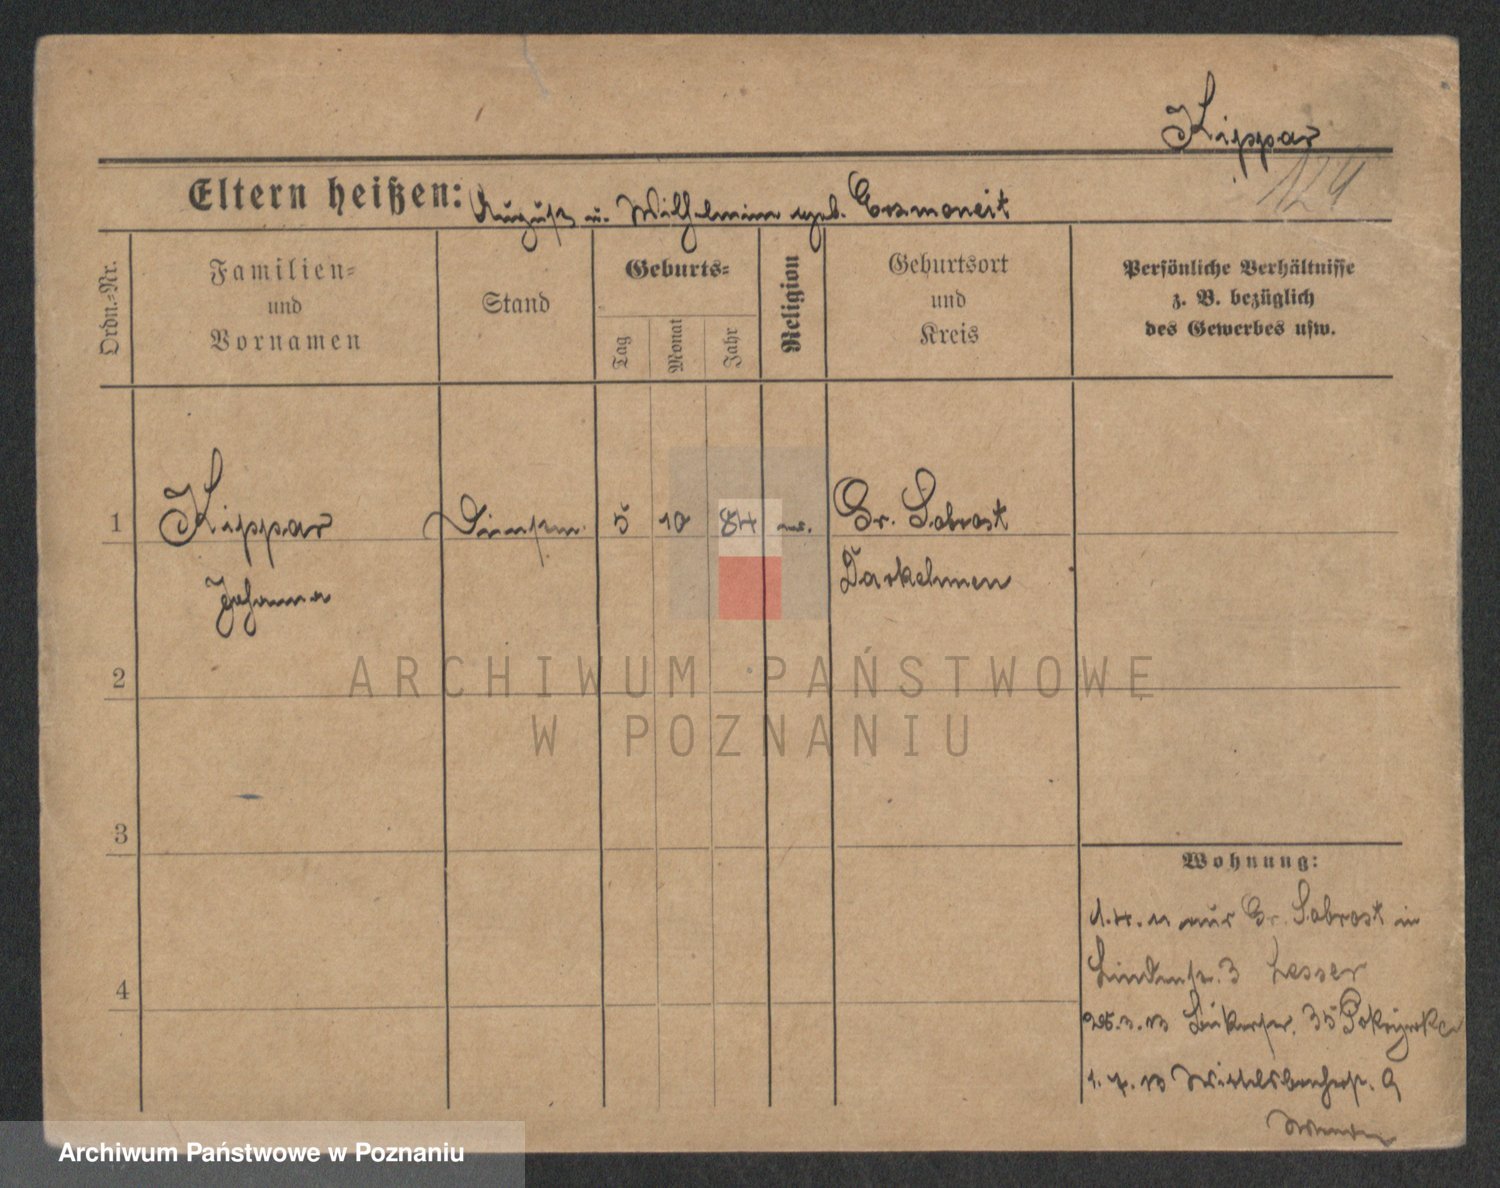 Kippar
124
Eltern heißen: August u. Wilhelmine geb. Ermoneit
Ordn.-Nr.
Familien- und Vornamen
Stand
Geburts-
Tag
Monat
Jahr
Religion
Geburtsort und Kreis
Persönliche Verhältnisse
z. B. bezüglich
des Gewerbes usw.
1 Kippar 5 10 84 ev. Gr. Sobrost
Johanna Darkehmen
2
ARCHIWUM PAŃSTWOWE
W POZNANIU
3
4
Wohnung:
1.4.11 aus Gr. Sobrost in
Lindenstr. 3 Lesser
35
1.7.13 Wittelsbacherstr. 9
Archiwum Państwowe w Poznaniu